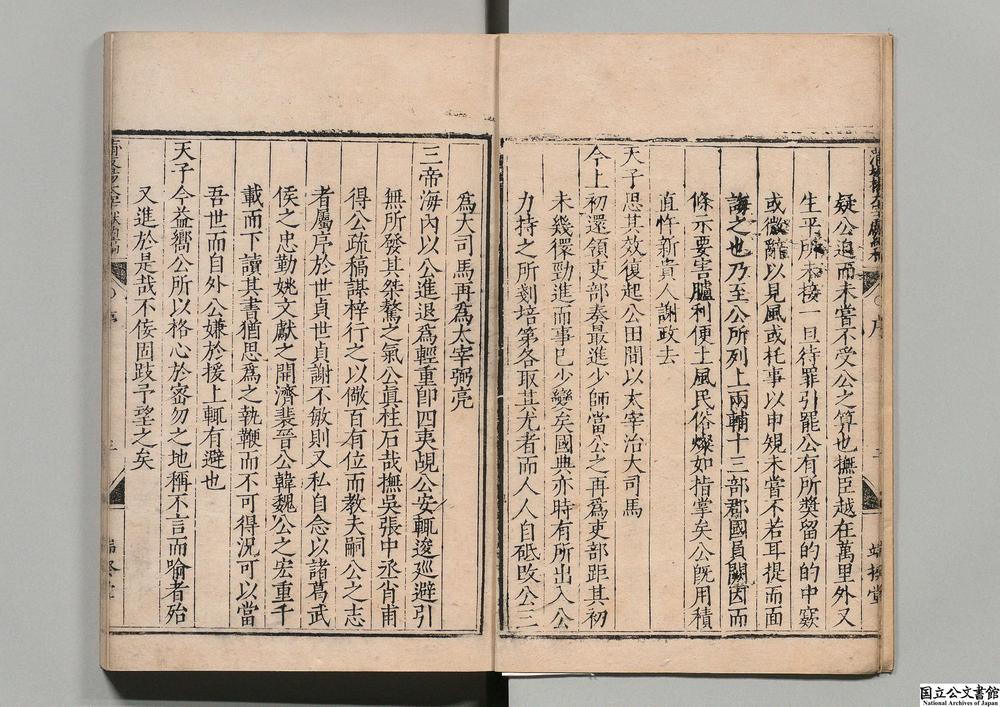 疑公迫而未嘗不受公之算也撫臣越在萬里外又
生平所未接一旦待罪引罷公有所獎留的的中窾
或微辭以見風或托事以申規未嘗不若耳提而面
誨之也乃至公所列上兩輔十三部郡國員闕因而
條示要害臚利便土風民俗燦如指掌矣公旣用積
直忤新貴人謝政去
天子思其效復起公田間以太宰治大司馬
今上初還領吏部奏最進少師當公之再為吏部距其初
未幾儇勁進而事已少變矣國典亦時有所出入公
力持之所剗培第各取其尤者而人人自砥改公三
為大司馬再為太宰弼亮
三帝海內以公進退為輕重卽四夷覘公安輒逡廵避引
無所發其桀驁之氣公眞柱石哉撫吳張中丞肖甫
得公疏稿謀梓行之以儆百有位而教夫嗣公之志
者屬序於世貞世貞謝不敏則又私自念以諸葛武
侯之忠勤姚文獻之開濟裴晉公韓魏公之宏重千
載而下讀其書猶思為之執鞭而不可得況可以當
吾世而自外公嫌於援上輒有避也
天子今益嚮公所以格心於密勿之地稱不言而喻者殆
又進於是哉不佞固跂予望之矣
序
三
國立公文書館
National Archives of Japan